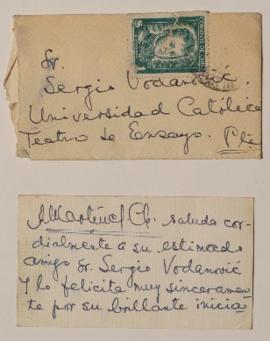 Sr.
Sergio Vodanović,
Universidad Católica
Teatro de Ensayo. Pte
saluda cor-
dialmente a su estimado
amigo Sr. Sergio Vodanović
y lo felicita muy sinceramen-
te por su brillante inicia-